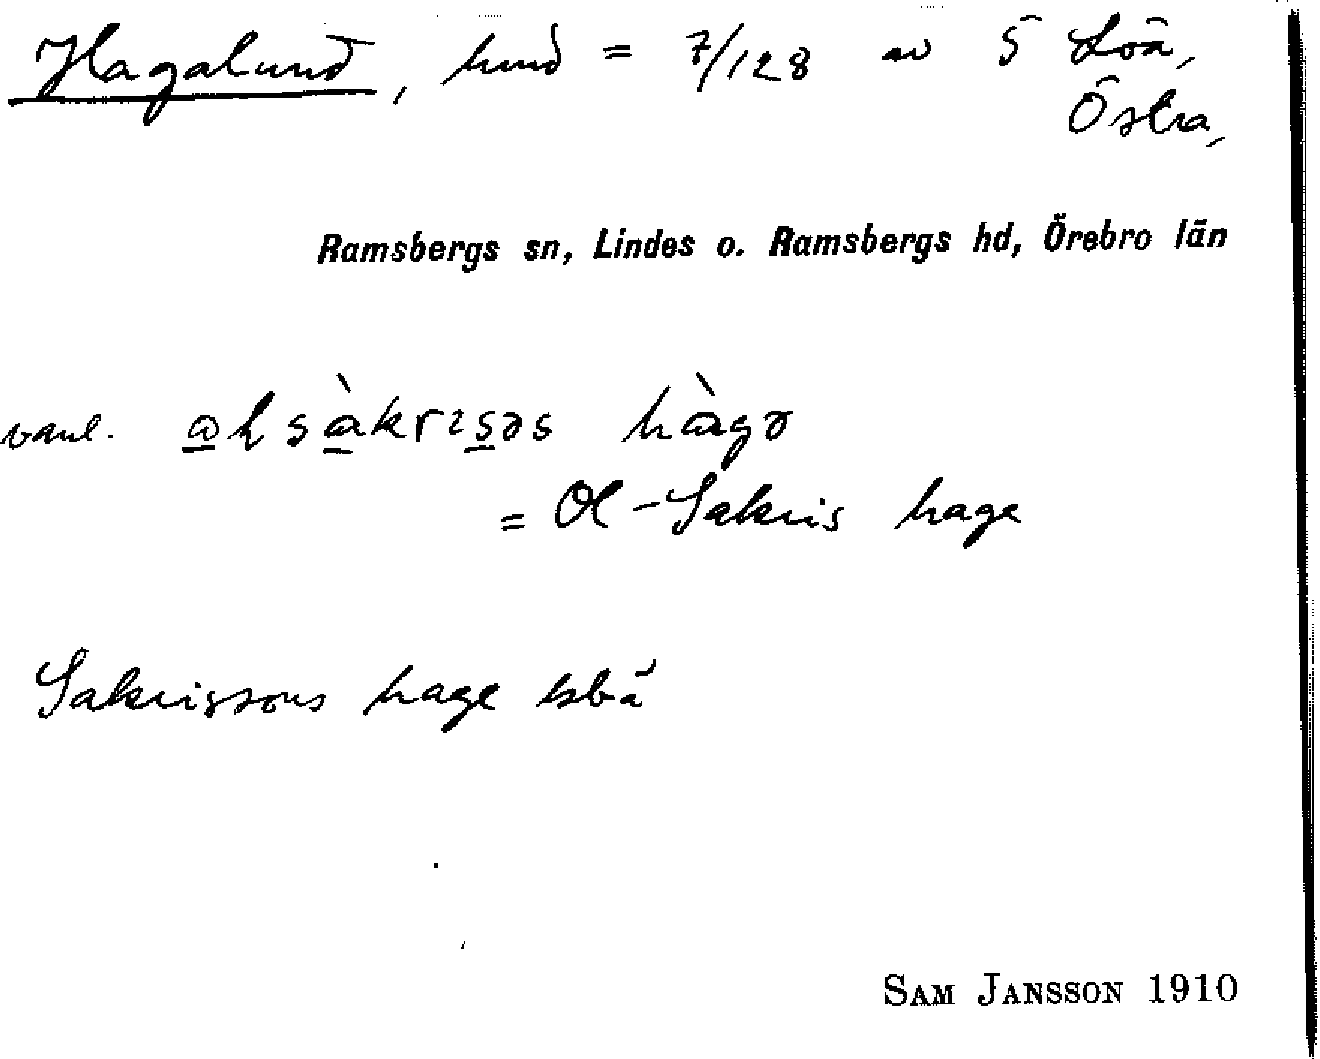 Hagalund, hmd = 7/128 av 5 Löa,
Östra,
Ramsbergs sn, Lindes o. Ramsbergs hd, Örebro län
vanl. hàgə
= Ol-Sakris hage
Sakrissons hage
SAM JANSSON 1910